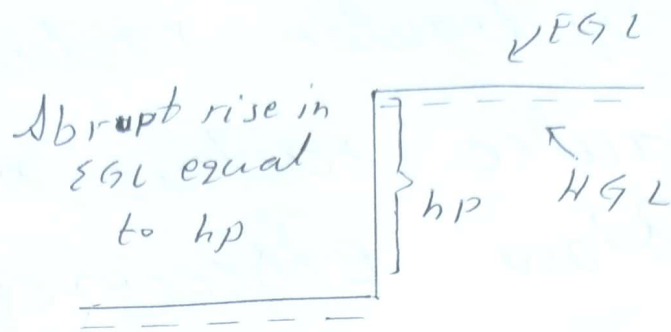 EGL
Abrupt rise in
EGL equal
to hp
hp
HGL